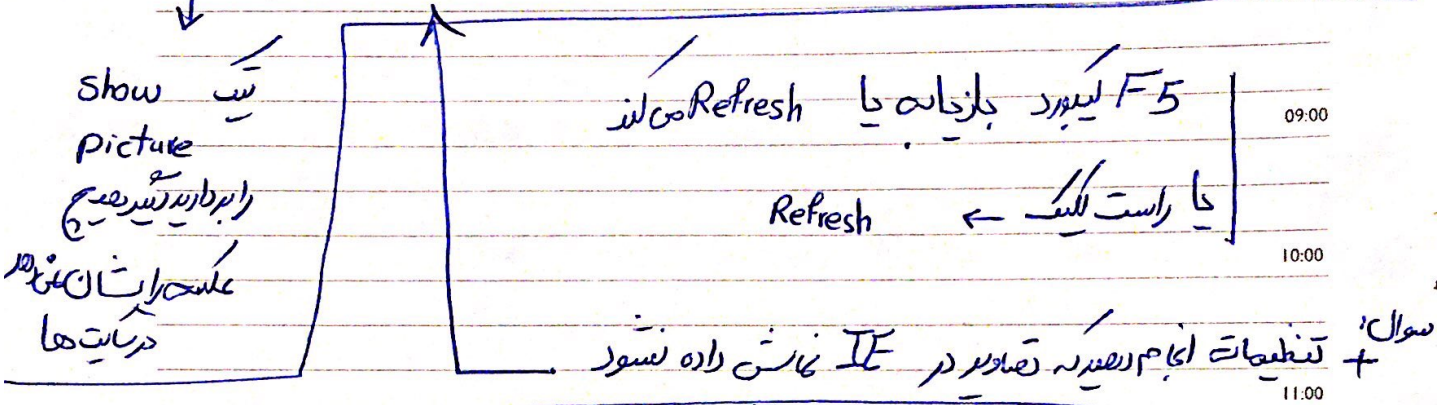 F5 کیبورد بازخانه یا Refresh می کند
09:00
یا راست کلیک ← Refresh
10:00
سوال:
+ تنظیمات انجام دهید که تصاویر در IE نمایش داده نشود
11:00
تیک Show
Picture
را بردارید دیگر هیچ
عکسی را نشان نمی دهد
در سایت ها